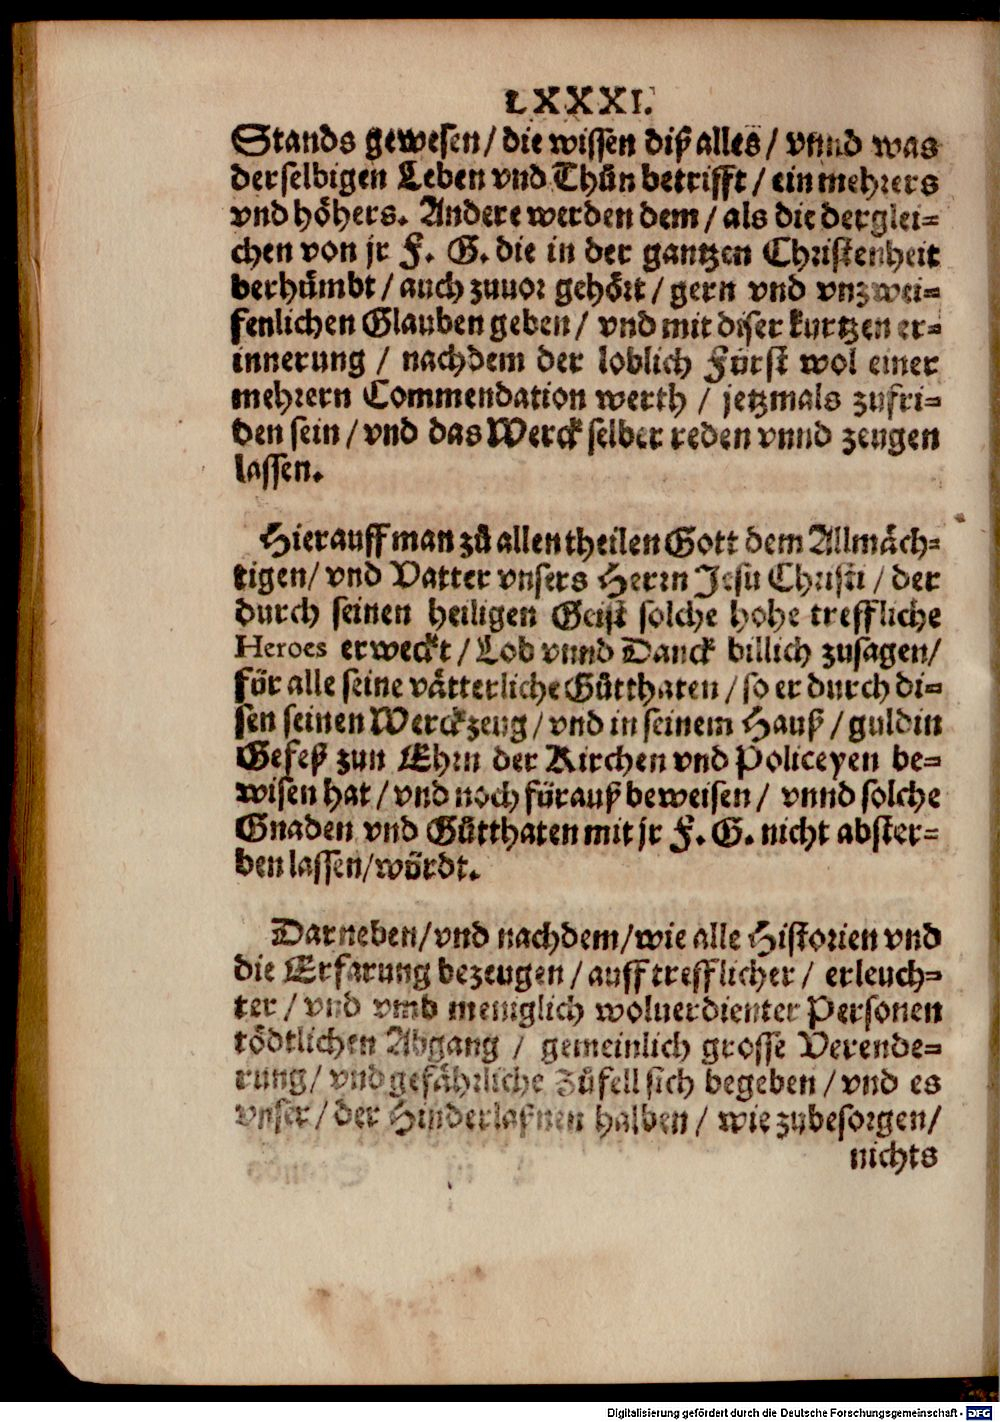 LXXXI.
Stands gewesen / die wissen diß alles / vnnd was
derselbigen Leben vnd Thůn betrifft / ein mehrers
vnd höhers. Andere werden dem / als die derglei=
chen von jr F. G. die in der gantzen Christenheit
berhümbt / auch zuuor gehört / gern vnd vnzwei=
fenlichen Glauben geben / vnd mit diser kurtzen er=
innerung / nachdem der loblich Fürst wol einer
mehrern Commendation werth / jetzmals zufri=
den sein / vnd das Werck selber reden vnnd zeugen
lassen.
Hierauff man zů allen theilen Gott dem Allmäch=
tigen / vnd Vatter vnsers Herrn Jesu Christi / der
durch seinen heiligen Geist solche hohe treffliche
Heroes erweckt / Lob vnnd Danck billich zusagen /
für alle seine vätterliche Gůtthaten / so er durch di=
sen seinen Werckzeug / vnd in seinem Hauß / guldin
Gefeß zun Ehrn der Kirchen vnd Policeyen be=
wisen hat / vnd noch fürauß beweisen / vnnd solche
Gnaden vnd Gůtthaten mit jr F. G. nicht abster=
ben lassen / würdt.
Darneben / vnd nachdem / wie alle Historien vnd
die Erfarung bezeugen / auff trefflicher / erleuch=
ter / vnd vmb meniglich woluerdienter Personen
tödtlichen Abgang / gemeinlich grosse Verende=
rung / vnd gefährliche Zůfell sich begeben / vnd es
vnser / der Hinderlaßnen halben / wie zubesorgen /
nichts
Digitalisierung gefördert durch die Deutsche Forschungsgemeinschaft - DFG